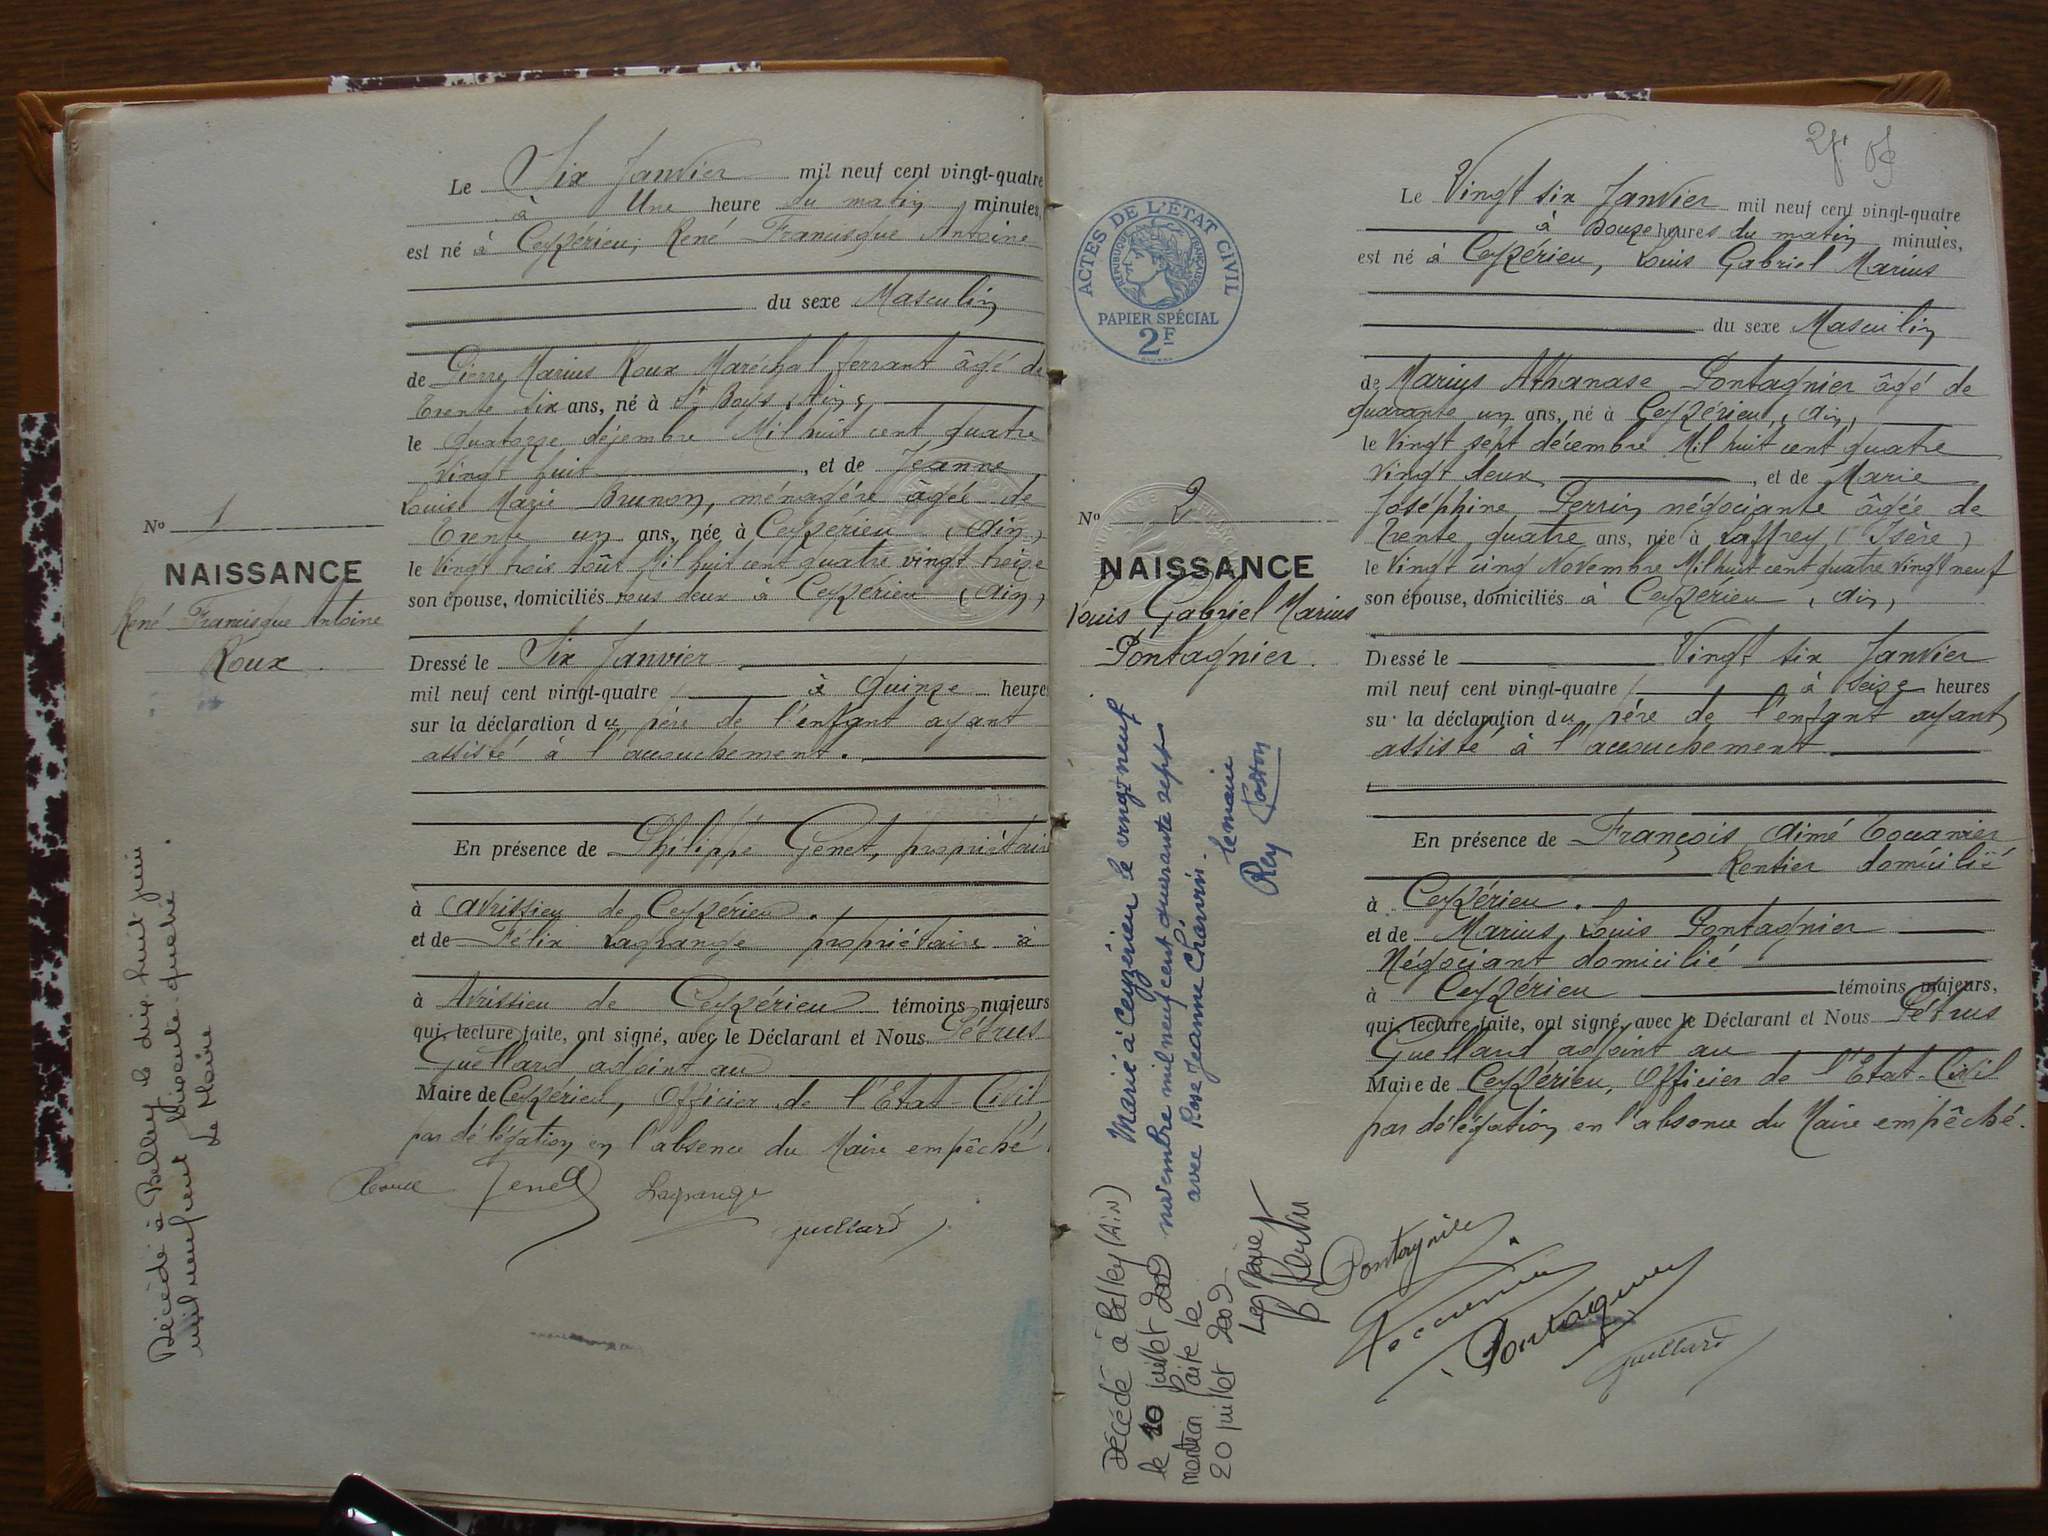 Le Six Janvier mil neuf cent vingt-quatre
à Une heure du matin minutes,
est né à Ceyzérieu, René Francisque Antoine
du sexe Masculin
de Pierre Marius Roux Maréchal ferrant âgé de
Trente six ans, né à St Boys, Ain,
le quatorze déjembre Mil huit cent quatre
vingt huit, et de Jeanne
Louise Marie Brunon, ménagère âgée de
Trente un ans, née à Ceyzérieu (Ain)
le Vingt trois Août Mil huit cent quatre vingt treize
son épouse, domiciliés tous deux à Ceyzérieu (Ain)
Dressé le Six Janvier
mil neuf cent vingt-quatre à quinze heures
sur la déclaration du père de l'enfant ayant
assisté à l'accouchement.
En présence de Philippe Genet, propriétaire
à Avrissieu de Ceyzérieu.
et de Félix Lagrange propriétaire à
à Avrissieu de Ceyzérieu témoins majeurs
qui, lecture faite, ont signé, avec le Déclarant et Nous Pétrus
Guellard adjoint au
Maire de Ceyzérieu, Officier de l'Etat-Civil
par délégation en l'absence du Maire empêché
Roux Genet Lagrange
Guellard
No 1
NAISSANCE
René Francisque Antoine
Roux.
Décédé à Belley le dix huit juin
mil neuf cent cinquante quatre.
Le Maire
2f
ACTES DE L'ÉTAT CIVIL
RÉPUBLIQUE FRANÇAISE
PAPIER SPÉCIAL
2F
No 2
NAISSANCE
Louis Gabriel Marius
Pontagnier.
Marié à Ceyzérieu le vingt neuf
novembre mil neuf cent quarante sept
avec Rose Jeanne Charvin.
le maire
Rey Gaston
DÉCÉDÉ à Belley (AIN)
le 10 juillet 2009
mention faite le
20 juillet 2009
Le Maire
Le Vingt six Janvier mil neuf cent vingt-quatre
à Douze heures du matin minutes,
est né à Ceyzérieu, Louis Gabriel Marius
du sexe Masculin
de Marius Athanase Pontagnier âgé de
quarante un ans, né à Ceyzérieu, Ain,
le Vingt sept décembre Mil huit cent quatre
vingt deux, et de Marie
Joséphine Perrin négociante âgée de
Trente quatre ans, née à Laffrey (Isère)
le Vingt cinq Novembre Mil huit cent quatre vingt neuf
son épouse, domiciliés à Ceyzérieu, Ain,
Dressé le Vingt six Janvier
mil neuf cent vingt-quatre à seize heures
sur la déclaration du père de l'enfant ayant
assisté à l'accouchement
En présence de François Aimé
Rentier domicilié
à Ceyzérieu.
et de Marius Louis Pontagnier
Négociant domicilié
à Ceyzérieu témoins majeurs,
qui, lecture faite, ont signé, avec le Déclarant et Nous Pétrus
Guellard adjoint au
Maire de Ceyzérieu, Officier de l'Etat-Civil
par délégation en l'absence du Maire empêché.
Pontagnier
Pontagnier
Guellard